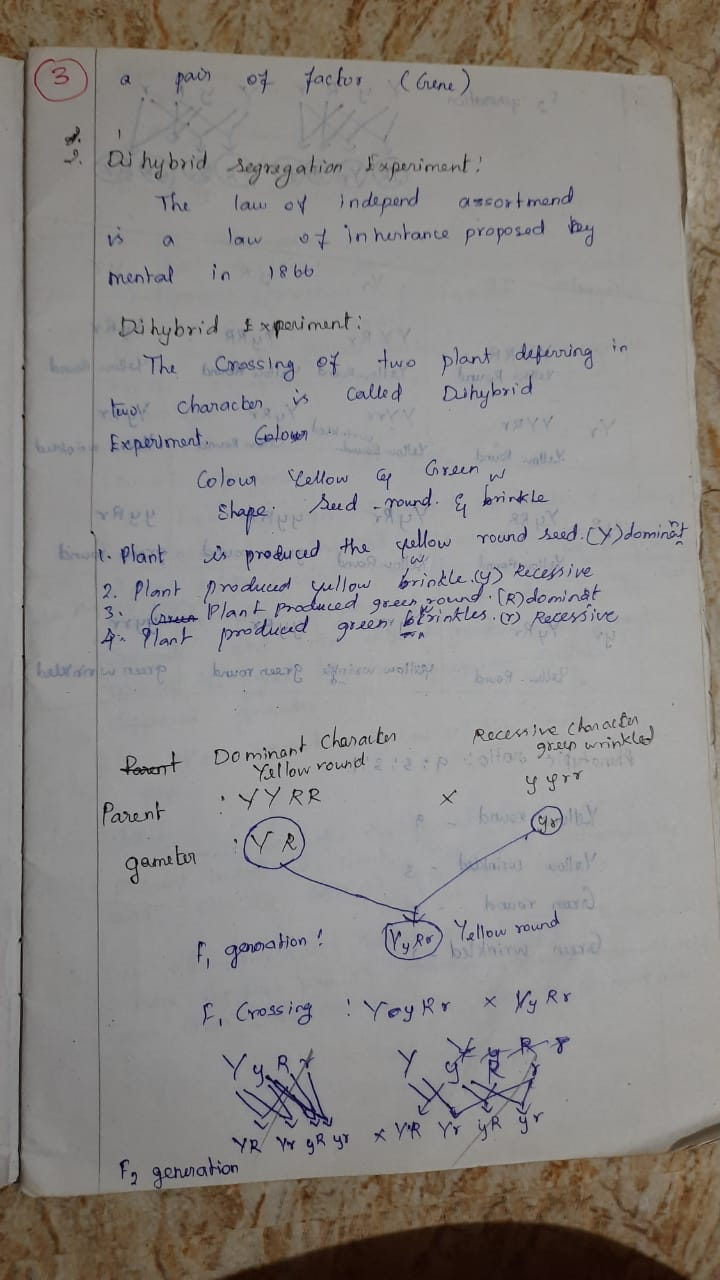 3
a pair of factor (Gene)
2. Dihybrid segregation Experiment:
The law of independ assortmend
is a law of inheritance proposed by
mental in 1866
Dihybrid Experiment:
The Crossing of two plant deferring in
two character is called Dihybrid
Experiment. Colour
Colour Yellow & Green
Shape. Seed - round. & brinkle
w
1. Plant is produced the yellow round seed. (Y) dominat
2. Plant produced yellow brinkle. (y) Recessive
w
3. Green Plant produced green round. (R) dominat
4. Plant produced green brinkles. (r) Recessive
Parent Dominant Character Recessive Character
Yellow round green wrinkled
Parent : YYRR x yyrr
gameter : YR yr
F1 generation: YyRr Yellow round
F1 Crossing : YyRr x YyRr
Y y R r
Y y R r Y y R r
YR Yr yR yr x YR Yr yR yr
F2 generation